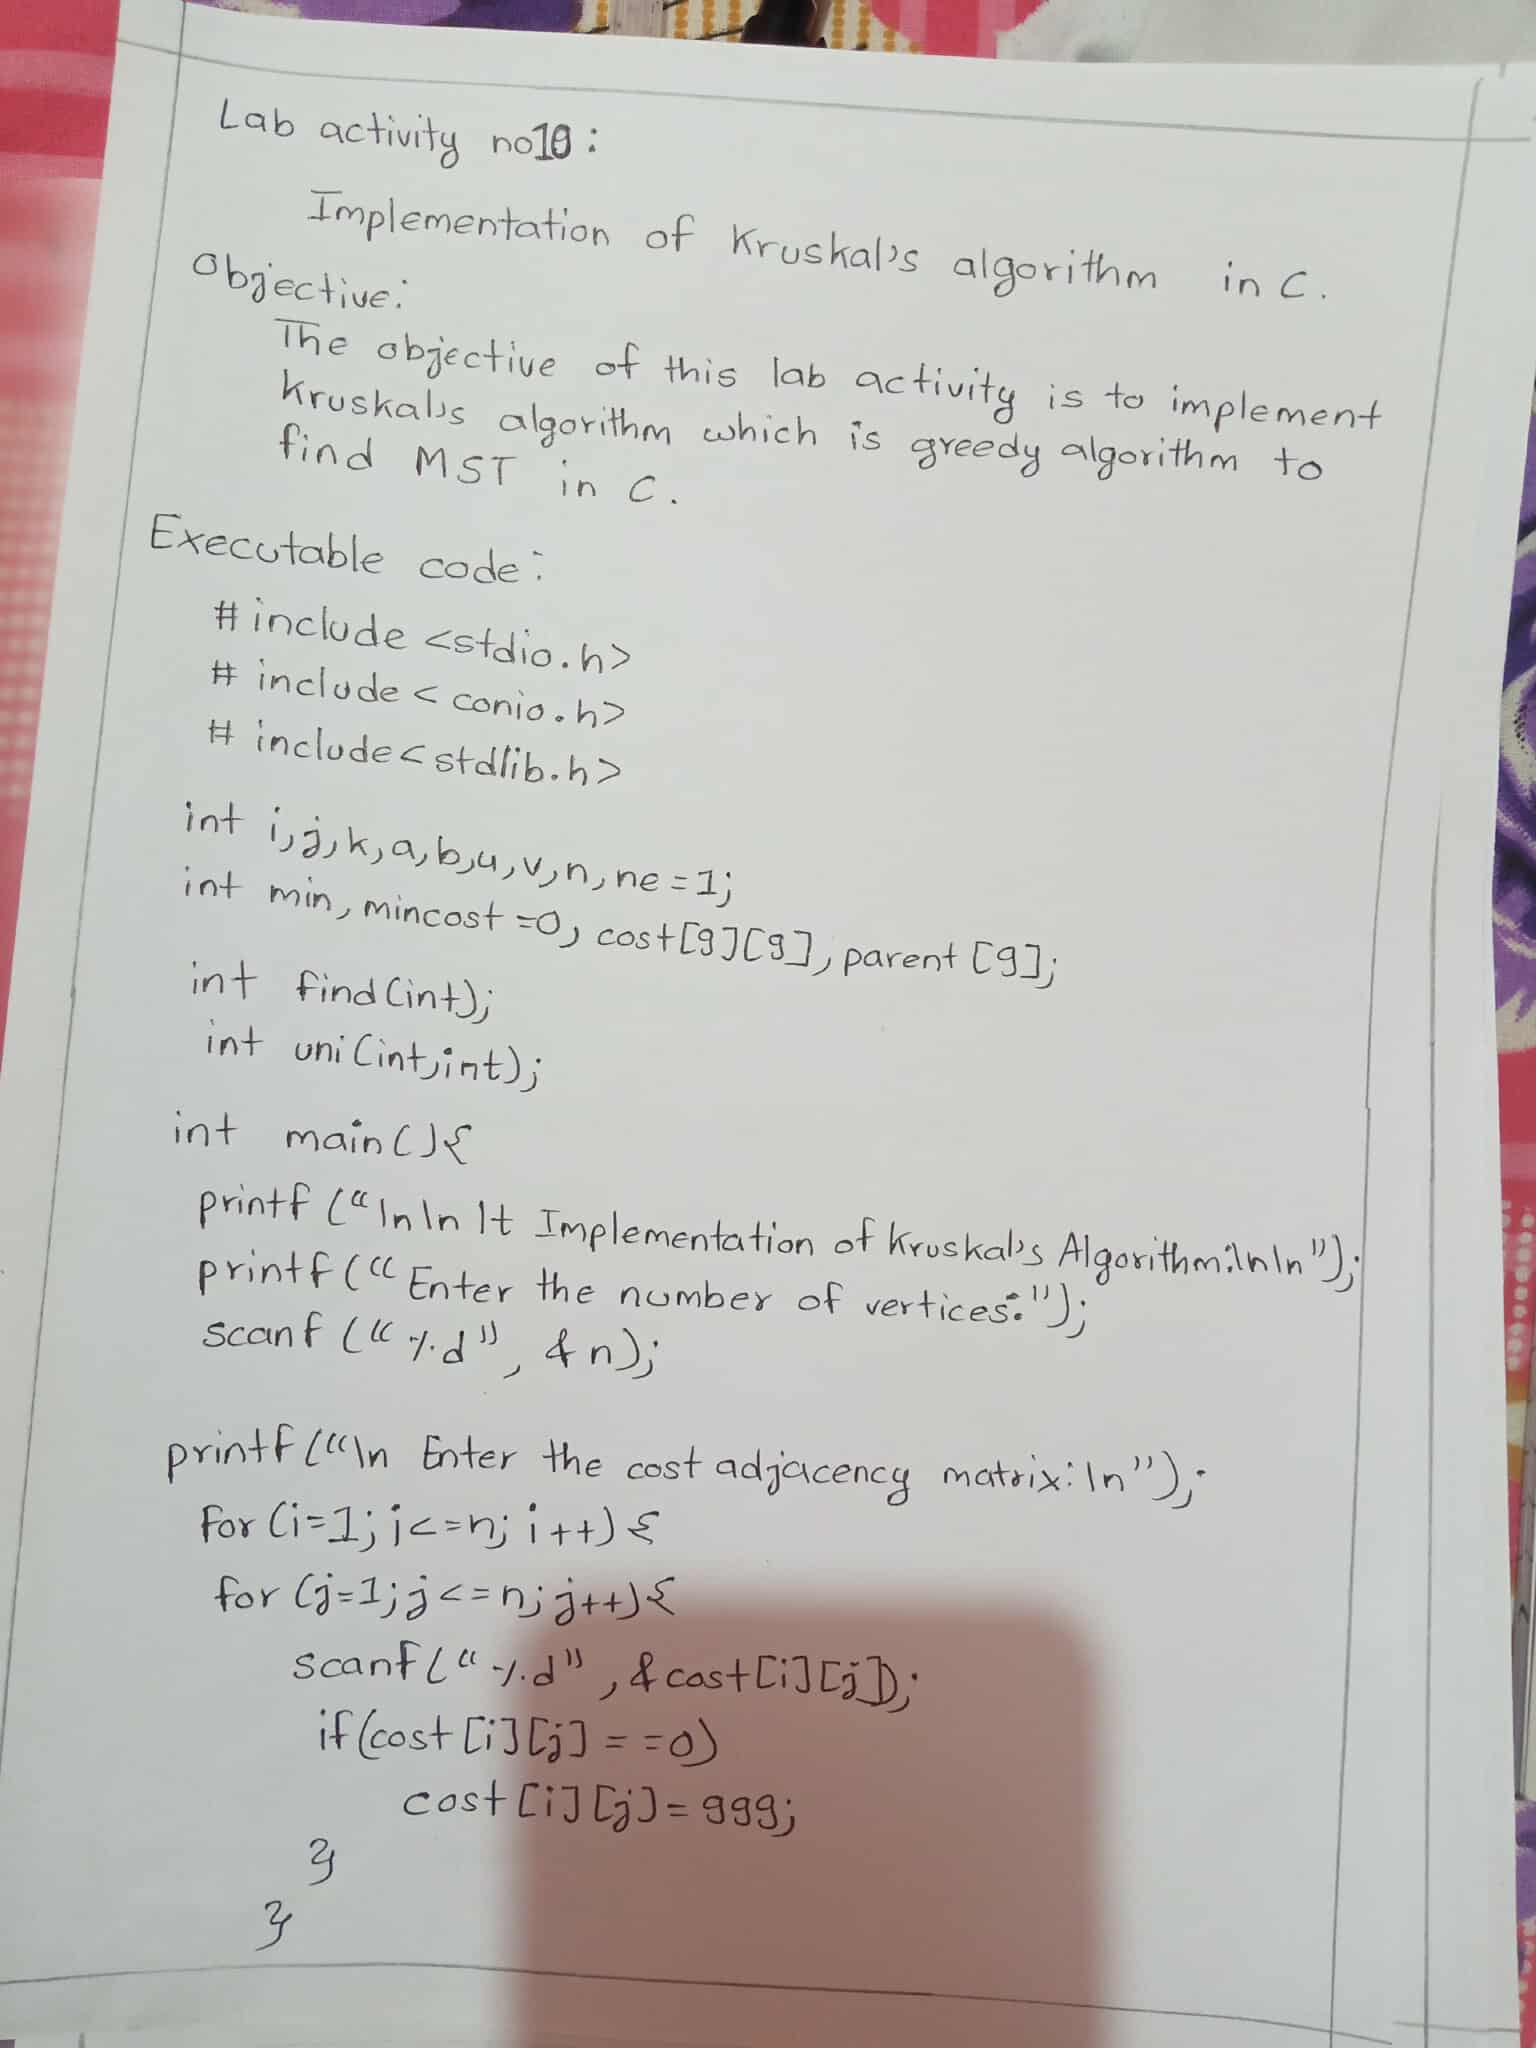 Lab activity no10:
Implementation of Kruskal's algorithm in C.
Objective:
The objective of this lab activity is to implement
Kruskal's algorithm which is greedy algorithm to
find MST in C.
Executable code:
#include <stdio.h>
#include <conio.h>
#include<stdlib.h>
int i,j,k,a,b,u,v,n,ne=1;
int min, mincost=0, cost[9][9], parent[9];
int find(int);
int uni(int,int);
int main(){
printf("\n\n\t Implementation of Kruskal's Algorithm:\n\n");
printf("Enter the number of vertices:");
scanf("%d", &n);
printf("\n Enter the cost adjacency matrix:\n");
for(i=1;i<=n;i++){
for(j=1;j<=n;j++){
scanf("%d",&cost[i][j]);
if(cost[i][j]==0)
cost[i][j]=999;
}
}